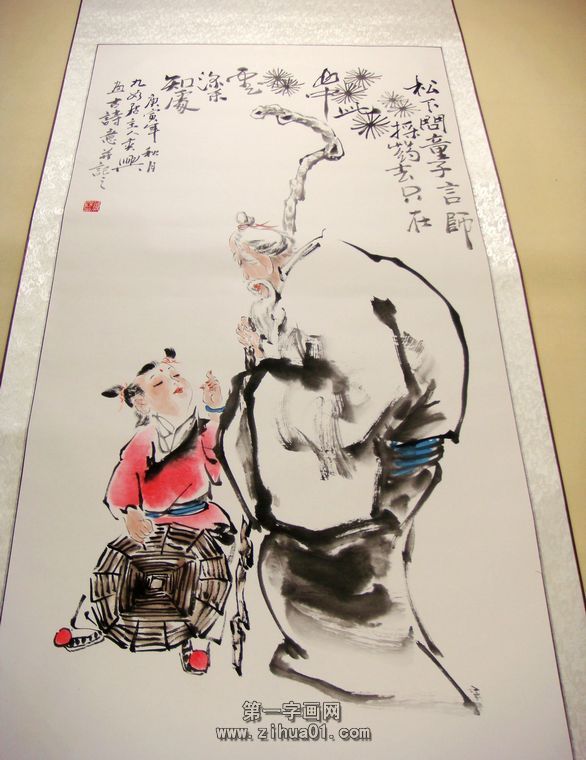 松下問童子言師
採药去只在
此
山中
雲
深不
知處
庚寅年秋月
主人
古詩意并記之
第一字画网
www.zihua01.com